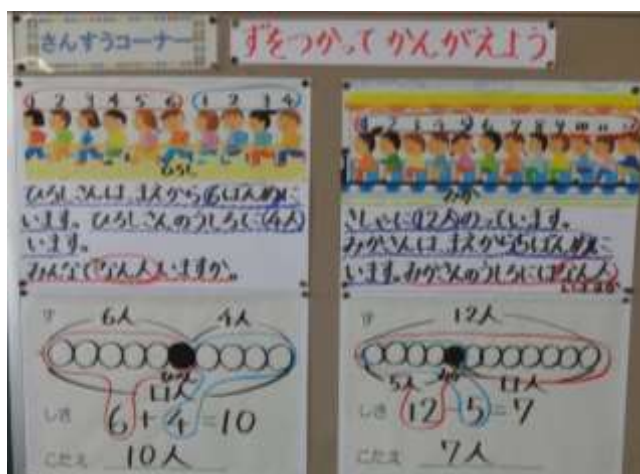 さんすうコーナー
ずをつかってかんがえよう
1 2 3 4 5 6 1 2 3 4
ひろし
ひろしさんは、まえから6ばんめに
います。ひろしさんのうしろに4人
います。
みんなでなん人いますか。
ず
6人 4人
しき
6+4=10
こたえ 10人
1 2 3 4 5 6 7 8 9 10 11 12
みか
きしゃに12人のっています。
みかさんは、まえから5ばんめに
います。みかさんのうしろにはなん人
いますか
ず
12人
5人
しき
12-5=7
こたえ 7人